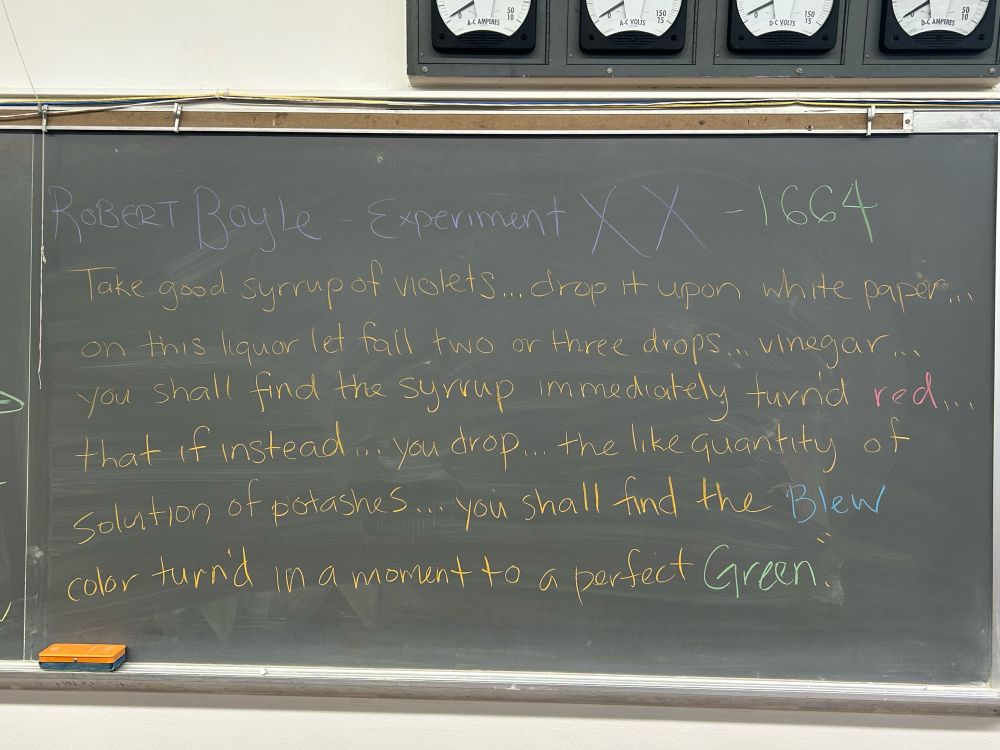 0 50 10 A-C AMPERES
0 150 15 A-C VOLTS
0 150 15 D-C VOLTS
0 50 10 D-C AMPERES
ROBERT BOYLE - Experiment XX - 1664
Take good syrrup of violets... drop it upon white paper...
on this liquor let fall two or three drops... vinegar...
you shall find the syrrup immediately turn'd red...
that if instead... you drop... the like quantity of
solution of potashes... you shall find the Blew
color turn'd in a moment to a perfect Green."